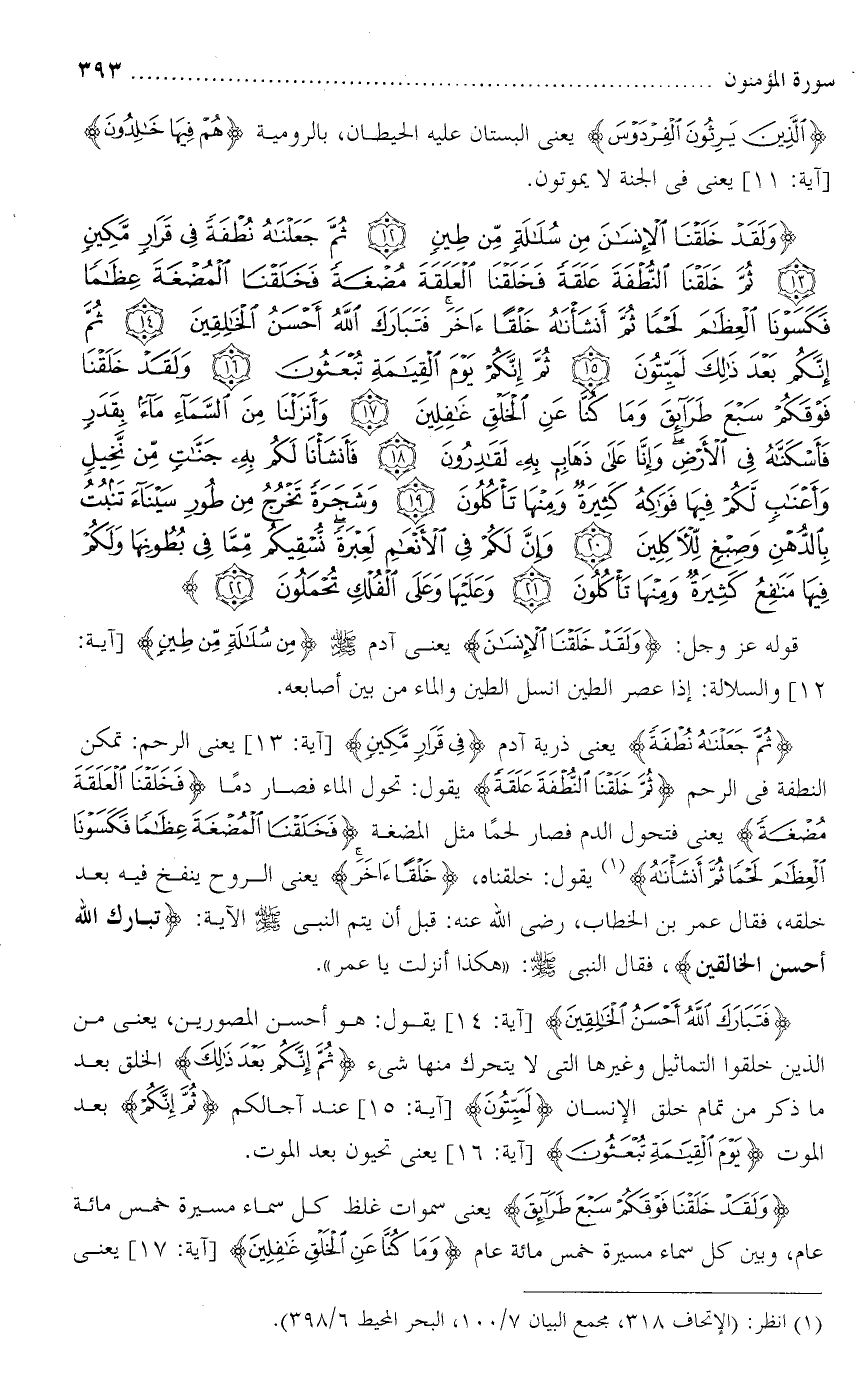 سورة المؤمنون ........................................................................ ٣٩٣
﴿ٱلَّذِينَ يَرِثُونَ ٱلْفِرْدَوْسَ﴾ يعنى البستان عليه الحيطان، بالرومية ﴿هُمْ فِيهَا خَٰلِدُونَ﴾
[آية: ١١] يعنى فى الجنة لا يموتون.
﴿وَلَقَدْ خَلَقْنَا ٱلْإِنسَٰنَ مِن سُلَٰلَةٍ مِّن طِينٍ ١٢ ثُمَّ جَعَلْنَٰهُ نُطْفَةً فِى قَرَارٍ مَّكِينٍ
١٣ ثُمَّ خَلَقْنَا ٱلنُّطْفَةَ عَلَقَةً فَخَلَقْنَا ٱلْعَلَقَةَ مُضْغَةً فَخَلَقْنَا ٱلْمُضْغَةَ عِظَٰمًا
فَكَسَوْنَا ٱلْعِظَٰمَ لَحْمًا ثُمَّ أَنشَأْنَٰهُ خَلْقًا ءَاخَرَ ۚ فَتَبَارَكَ ٱللَّهُ أَحْسَنُ ٱلْخَٰلِقِينَ ١٤ ثُمَّ
إِنَّكُم بَعْدَ ذَٰلِكَ لَمَيِّتُونَ ١٥ ثُمَّ إِنَّكُمْ يَوْمَ ٱلْقِيَٰمَةِ تُبْعَثُونَ ١٦ وَلَقَدْ خَلَقْنَا
فَوْقَكُمْ سَبْعَ طَرَآئِقَ وَمَا كُنَّا عَنِ ٱلْخَلْقِ غَٰفِلِينَ ١٧ وَأَنزَلْنَا مِنَ ٱلسَّمَآءِ مَآءًۢ بِقَدَرٍ
فَأَسْكَنَّٰهُ فِى ٱلْأَرْضِ ۖ وَإِنَّا عَلَىٰ ذَهَابٍۭ بِهِۦ لَقَٰدِرُونَ ١٨ فَأَنشَأْنَا لَكُم بِهِۦ جَنَّٰتٍ مِّن نَّخِيلٍ
وَأَعْنَٰبٍ لَّكُمْ فِيهَا فَوَٰكِهُ كَثِيرَةٌ وَمِنْهَا تَأْكُلُونَ ١٩ وَشَجَرَةً تَخْرُجُ مِن طُورِ سَيْنَآءَ تَنۢبُتُ
بِٱلدُّهْنِ وَصِبْغٍ لِّلْءَاكِلِينَ ٢٠ وَإِنَّ لَكُمْ فِى ٱلْأَنْعَٰمِ لَعِبْرَةً ۖ نُّسْقِيكُم مِّمَّا فِى بُطُونِهَا وَلَكُمْ
فِيهَا مَنَٰفِعُ كَثِيرَةٌ وَمِنْهَا تَأْكُلُونَ ٢١ وَعَلَيْهَا وَعَلَى ٱلْفُلْكِ تُحْمَلُونَ ٢٢﴾
قوله عز وجل: ﴿وَلَقَدْ خَلَقْنَا ٱلْإِنسَٰنَ﴾ يعنى آدم ﷺ ﴿مِن سُلَٰلَةٍ مِّن طِينٍ﴾ [آية:
١٢] والسلالة: إذا عصر الطين انسل الطين والماء من بين أصابعه.
﴿ثُمَّ جَعَلْنَٰهُ نُطْفَةً﴾ يعنى ذرية آدم ﴿فِى قَرَارٍ مَّكِينٍ﴾ [آية: ١٣] يعنى الرحم: تمكن
النطفة فى الرحم ﴿ثُمَّ خَلَقْنَا ٱلنُّطْفَةَ عَلَقَةً﴾ يقول: تحول الماء فصار دمًا ﴿فَخَلَقْنَا ٱلْعَلَقَةَ
مُضْغَةً﴾ يعنى فتحول الدم فصار لحمًا مثل المضغة ﴿فَخَلَقْنَا ٱلْمُضْغَةَ عِظَٰمًا فَكَسَوْنَا
ٱلْعِظَٰمَ لَحْمًا ثُمَّ أَنشَأْنَٰهُ﴾(١) يقول: خلقناه، ﴿خَلْقًا ءَاخَرَ ۚ﴾ يعنى الروح ينفخ فيه بعد
خلقه، فقال عمر بن الخطاب، رضى الله عنه: قبل أن يتم النبى ﷺ الآية: ﴿تبارك الله
أحسن الخالقين﴾، فقال النبى ﷺ: «هكذا أنزلت يا عمر».
﴿فَتَبَارَكَ ٱللَّهُ أَحْسَنُ ٱلْخَٰلِقِينَ﴾ [آية: ١٤] يقول: هو أحسن المصورين، يعنى من
الذين خلقوا التماثيل وغيرها التى لا يتحرك منها شىء ﴿ثُمَّ إِنَّكُم بَعْدَ ذَٰلِكَ﴾ الخلق بعد
ما ذكر من تمام خلق الإنسان ﴿لَمَيِّتُونَ﴾ [آية: ١٥] عند آجالكم ﴿ثُمَّ إِنَّكُمْ﴾ بعد
الموت ﴿يَوْمَ ٱلْقِيَٰمَةِ تُبْعَثُونَ﴾ [آية: ١٦] يعنى تحيون بعد الموت.
﴿وَلَقَدْ خَلَقْنَا فَوْقَكُمْ سَبْعَ طَرَآئِقَ﴾ يعنى سموات غلظ كل سماء مسيرة خمس مائة
عام، وبين كل سماء مسيرة خمس مائة عام ﴿وَمَا كُنَّا عَنِ ٱلْخَلْقِ غَٰفِلِينَ﴾ [آية: ١٧] يعنى
(١) انظر: (الإتحاف ٣١٨، مجمع البيان ١٠٠/٧، البحر المحيط ٣٩٨/٦).